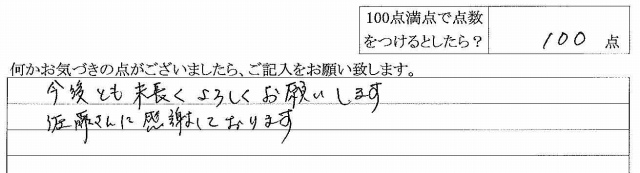 100点満点で点数
をつけるとしたら？ 100 点
何かお気づきの点がございましたら、ご記入をお願い致します。
今後とも末長くよろしくお願いします
佐藤さんに感謝しております